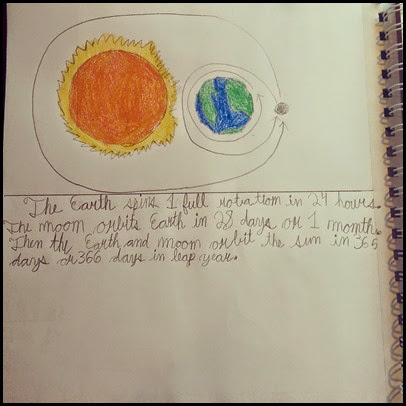 The Earth spins 1 full rotation in 24 hours.
The moon orbits Earth in 28 days or 1 month.
Then the Earth and moon orbit the sun in 365
days or 366 days in leap year.